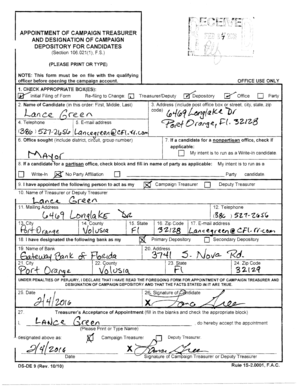 APPOINTMENT OF CAMPAIGN TREASURER
AND DESIGNATION OF CAMPAIGN
DEPOSITORY FOR CANDIDATES
(Section 106.021(1), F.S.)
(PLEASE PRINT OR TYPE)
NOTE: This form must be on file with the qualifying
officer before opening the campaign account.
OFFICE USE ONLY
1. CHECK APPROPRIATE BOX(ES):
Initial Filing of Form Re-filing to Change: Treasurer/Deputy Depository Office Party
2. Name of Candidate (in this order: First, Middle, Last)
Lance Green
3. Address (include post office box or street, city, state, zip
code)
6469 Longlake Dr
Port Orange, Fl. 32128
4. Telephone
5. E-mail address
386 527-2656 Lancegreen@CFL.rr.com
6. Office sought (include district, circuit, group number)
Mayor
7. If a candidate for a nonpartisan office, check if
applicable:
My intent is to run as a Write-In candidate.
8. If a candidate for a partisan office, check block and fill in name of party as applicable: My intent is to run as a
Write-In No Party Affiliation Party candidate.
9. I have appointed the following person to act as my Campaign Treasurer Deputy Treasurer
10. Name of Treasurer or Deputy Treasurer
Lance Green
11. Mailing Address
6469 Longlake Dr
12. Telephone
386 527-2656
13. City
Port Orange
14. County
Volusia
15. State
Fl
16. Zip Code
32128
17. E-mail address
Lancegreen@CFL.rr.com
18. I have designated the following bank as my Primary Depository Secondary Depository
19. Name of Bank
Gateway Bank of Florida
20. Address
3741 S. Nova Rd.
21. City
Port Orange
22. County
Volusia
23. State
Fl
24. Zip Code
32129
UNDER PENALTIES OF PERJURY, I DECLARE THAT I HAVE READ THE FOREGOING FORM FOR APPOINTMENT OF CAMPAIGN TREASURER AND
DESIGNATION OF CAMPAIGN DEPOSITORY AND THAT THE FACTS STATED IN IT ARE TRUE.
25. Date
2/4/2016
26. Signature of Candidate
X
27. Treasurer's Acceptance of Appointment (fill in the blanks and check the appropriate block)
I, LANCE Green do hereby accept the appointment
(Please Print or Type Name)
designated above as: Campaign Treasurer Deputy Treasurer.
2/4/2016
X
Date
Signature of Campaign Treasurer or Deputy Treasurer
DS-DE 9 (Rev. 10/10)
Rule 1S-2.0001, F.A.C.